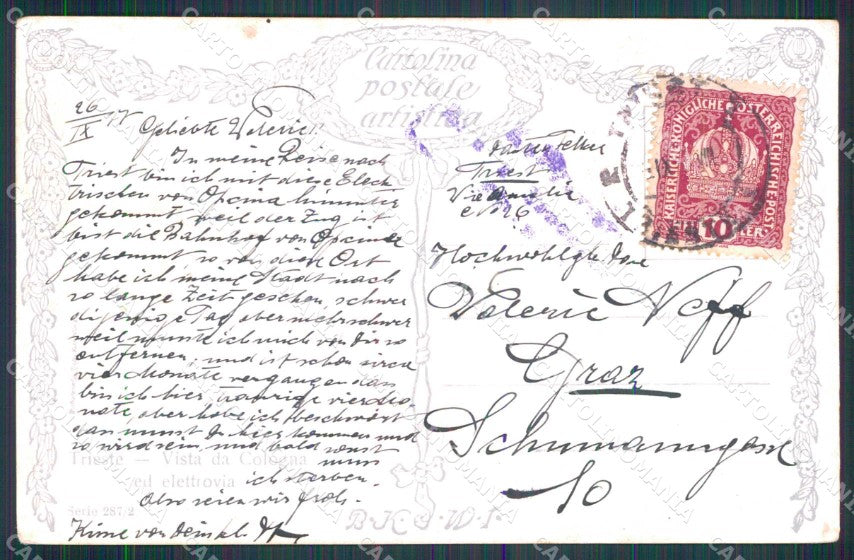 Cartolina
postale
artistica
26/IX 17
Geliebte Valerie!
In meine Reise nach
Triest bin ich mit diese Elek
trischen von Opcina hinunter
gekommt, weil der Zug ist
bist die Bahnhof von Opcina
gekommt so von diese Ort
habe ich meine Stadt nach
so lange Zeit gesehen, schwer
Tag aber mehr schwer
weil musste ich mich von dir so
entfernen; und ist schon circa
vier Monate vergangen das
bin ich hier, traurige vier Mo-
nate, aber habe ich beschwört
das musst du hier kommen und
so wird sein, und bald sonst
muss
ich sterben.
Also seien wir froh.
Trieste - Vista da Cologna
ed elettrovia
Serie 287/2
B.K.W.I.
Triest
Via
No 26
Hochwohlgeb
Valerie Neff
Graz
Schumanngasse
10
KAISERLICHE KÖNIGLICHE ÖSTERREICHISCHE POST
10 HELLER
TRIEST
CARTOLINA MANIA